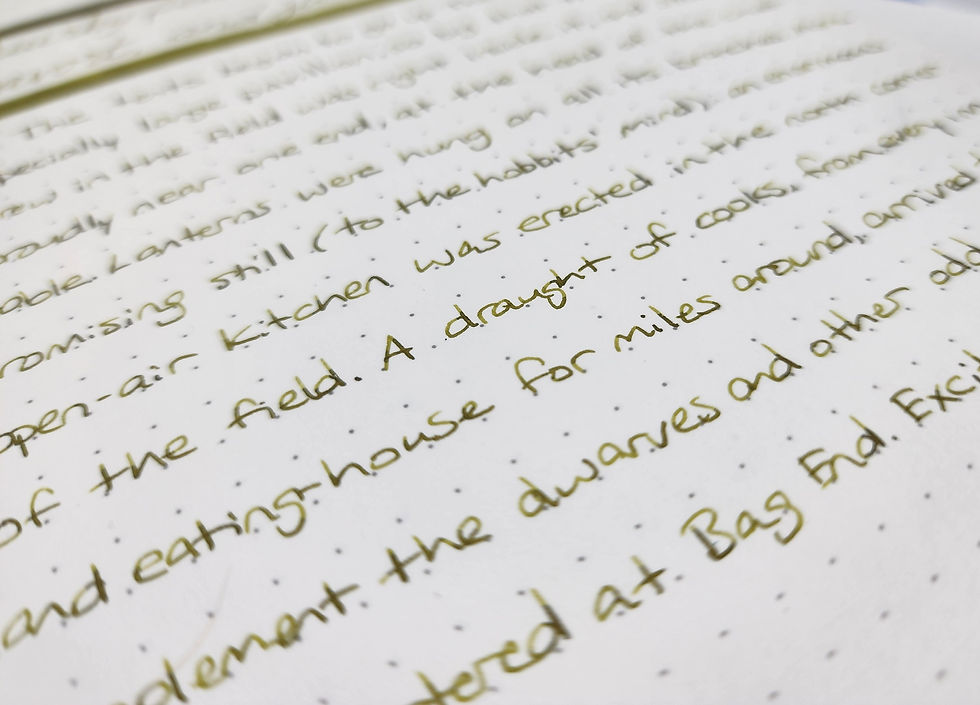 The tents began to go up
pecially large pavilion
rew in the field was right inside it, and stood
proudly near one end, at the head of the
able. Lanterns were hung on all its branches. More
romising still (to the hobbits' mind), an enormous
open-air kitchen was erected in the north corner
of the field. A draught of cooks, from every inn
and eating-house for miles around, arrived
plement the dwarves and other odd
tered at Bag End. Excit